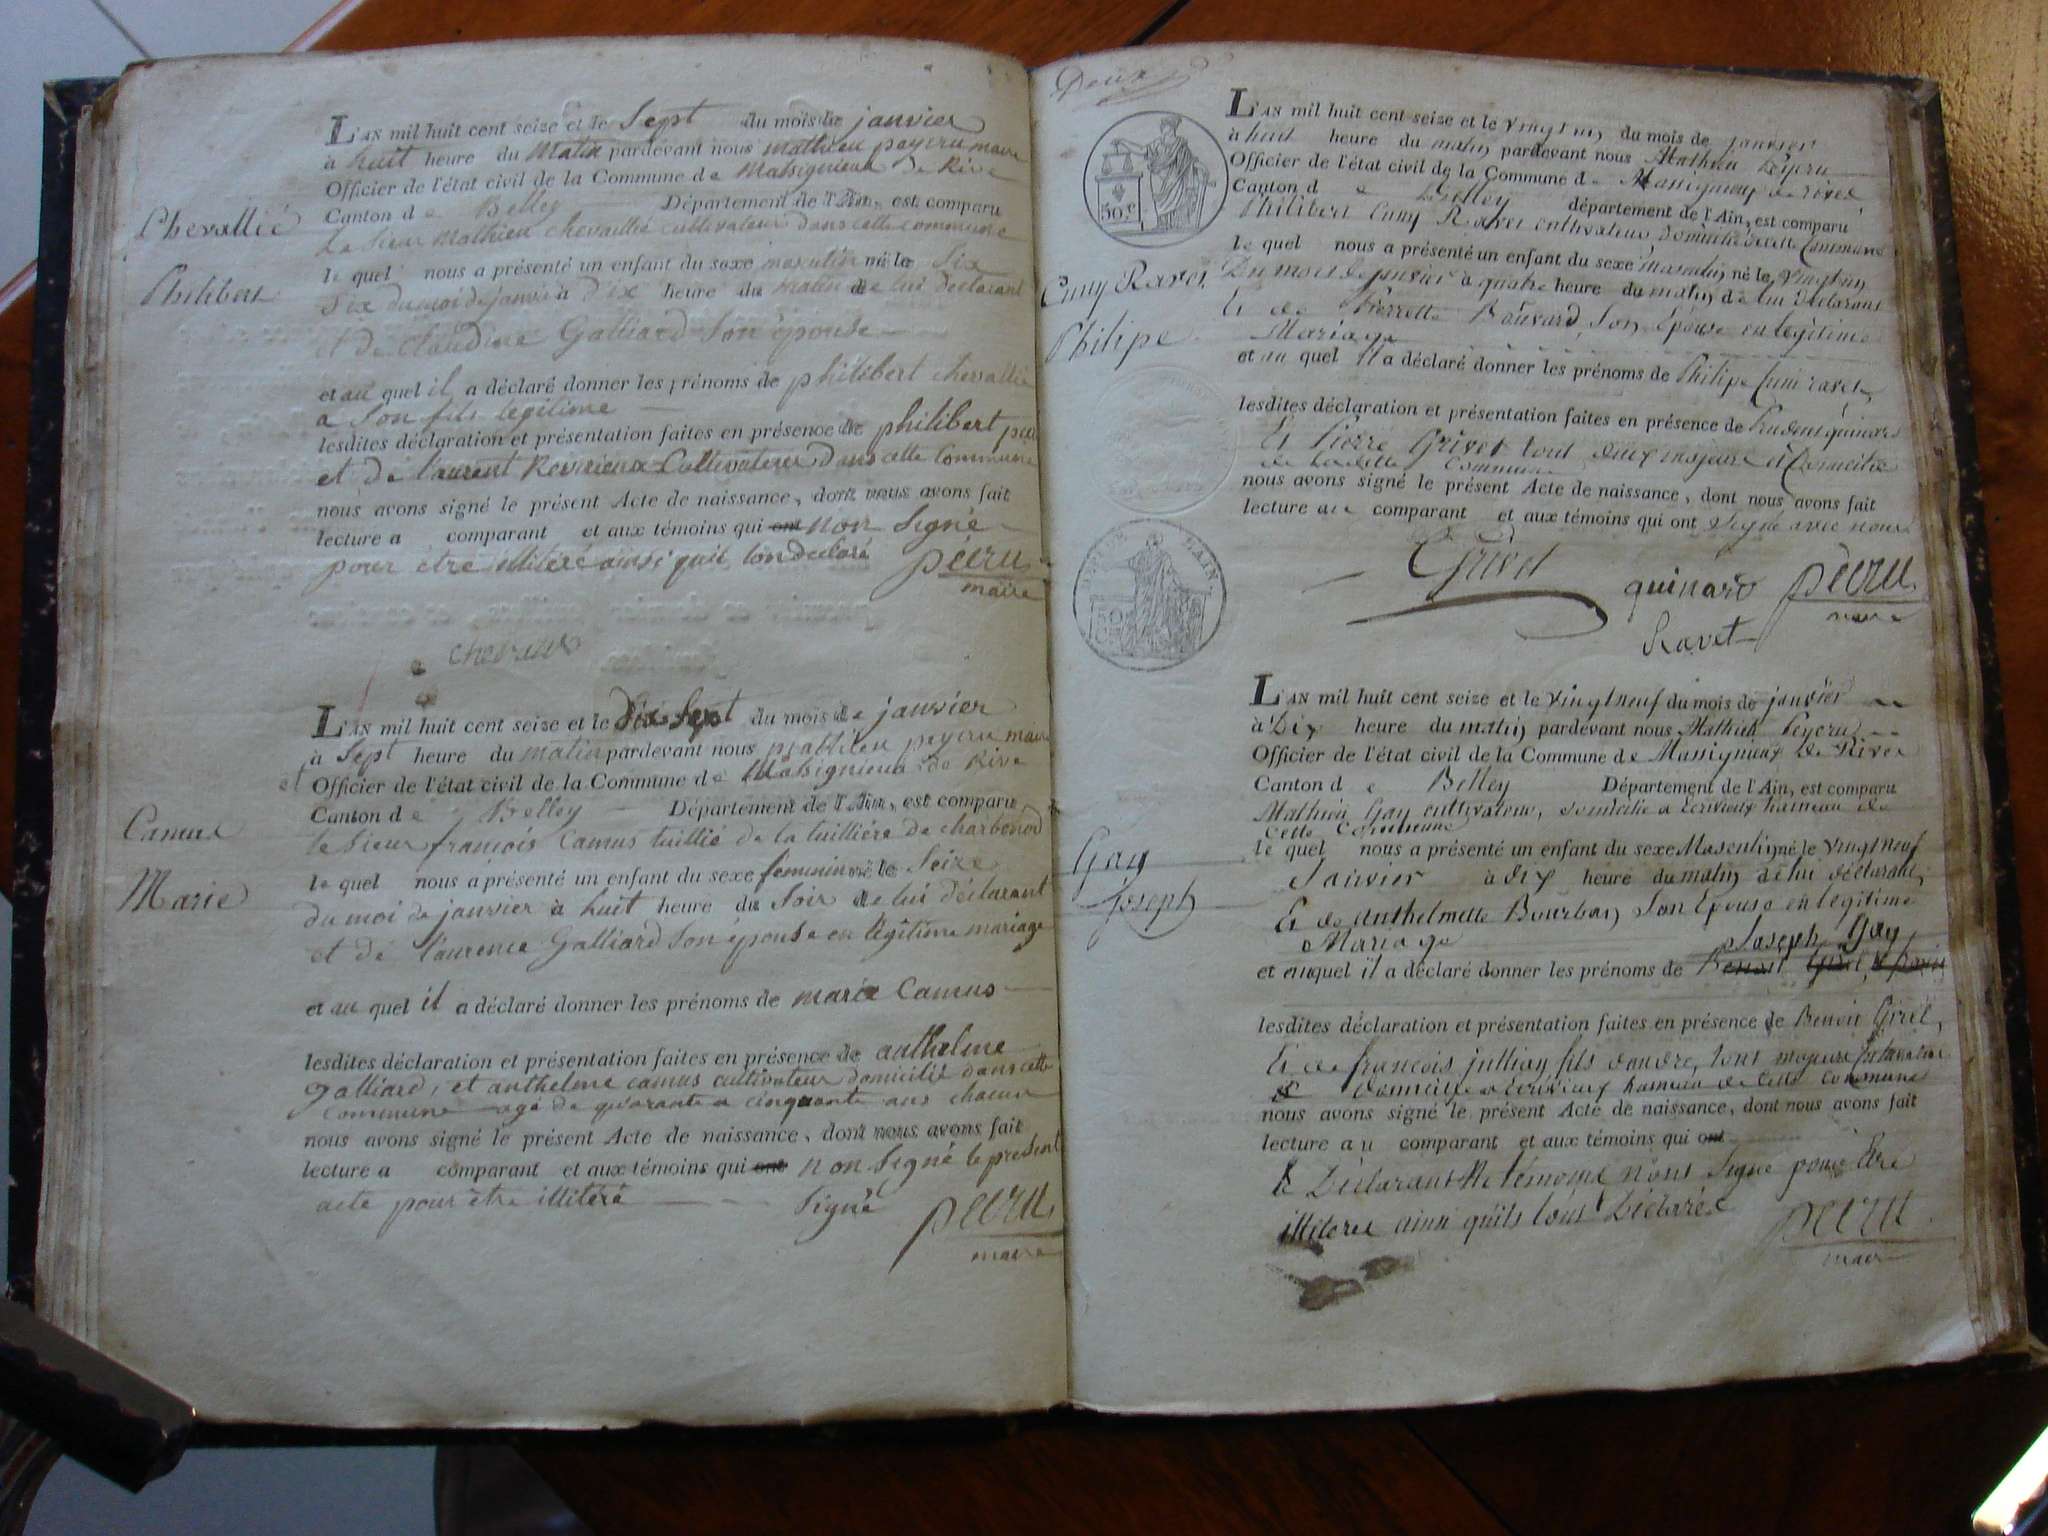 Chevallié
Philibert
L'AN mil huit cent seize et le Sept du mois de janvier
à huit heure du Matin pardevant nous mathieu peycru maire
Officier de l'état civil de la Commune de Massignieux de Rive
Canton de Belley Département de l'Ain, est comparu
Le Sieur Mathieu chevallié cultivateur dans cette commune
lequel nous a présenté un enfant du sexe masculin né le Six
Six du moi de janvié à Dix heure du matin de lui declarant
et de Claudine Galliard Son épouse
et au quel il a déclaré donner les prénoms de philibert chevallié
a Son fils legitime
lesdites déclaration et présentation faites en présence de philibert
et de laurent Revirieux Cultivateur dans cette Commune
nous avons signé le présent Acte de naissance, dont nous avons fait
lecture a comparant et aux témoins qui ont non Signé
pour être illitéré ainsi quil lon declaré pécru
maire
Camus
Marie
L'AN mil huit cent seize et le Dix Sept du mois de janvier
à Sept heure du matin pardevant nous mathieu peycru maire
et Officier de l'état civil de la Commune de Massignieux de Rive
Canton de Belley Département de l'Ain, est comparu
le Sieur francois Camus tuillié de la tuilliére de charbonod
lequel nous a présenté un enfant du sexe feminin né le Seize
du moi de janvier à huit heure du Soir de lui déclarant
et de laurence Galliard Son épouse en légitime mariage
et au quel il a déclaré donner les prénoms de marie Camus
lesdites déclaration et présentation faites en présence de anthelme
galliard, et anthelme camus cultivateur domicilié dans cette
Commune agé de quarante a cinquante ans chacun
nous avons signé le présent Acte de naissance, dont nous avons fait
lecture a comparant et aux témoins qui ont non Signé le present
acte pour être illitéré Signé pécru
maire
Deux
50 c
Cuny Ravet
Philipe
L'AN mil huit cent seize et le vingt un du mois de janvier
à huit heure du matin pardevant nous Mathieu Péycru
Officier de l'état civil de la Commune de Massignieux de rives
Canton de Belley département de l'Ain, est comparu
Philibert Cuny Ravet cultivateur, Domicilié de cette Commune
lequel nous a présenté un enfant du sexe Masculin né le vingt un
Du mois de janvier à quatre heure du matin de lui déclarant
Et de Pierrette Bouvard Son Epouse en legitime
Mariage
et au quel il a déclaré donner les prénoms de Philipe Cuni ravet
lesdites déclaration et présentation faites en présence de quinard
Et Pierre Grivet tout deux majeure et Domicilié
de laditte Commune
nous avons signé le présent Acte de naissance, dont nous avons fait
lecture au comparant et aux témoins qui ont signé avec nous
Grivet
quinard pécru
maire
Ravet
AIN
50 C
Gay
Joseph
L'AN mil huit cent seize et le vingt neuf du mois de janvier
à Dix heure du matin pardevant nous Mathieu Peycru
Officier de l'état civil de la Commune de Massignieux de Rives
Canton de Belley Département de l'Ain, est comparu
Mathieu Gay cultivateur, domicilié a Ecrivieux hameau de
cette commune
lequel nous a présenté un enfant du sexe Masculin né le vingt neuf
Janvier à dix heure du matin de lui déclarant,
Et de anthelmette Bourbon Son Epouse en legitime
Mariage
Joseph Gay
et auquel il a déclaré donner les prénoms de Benoit Girel
lesdites déclaration et présentation faites en présence de Benoit Girel,
Et de francois jullian fils dandre, tout majeure
domicilié a Ecrivieux hameau de cette commune
nous avons signé le présent Acte de naissance, dont nous avons fait
lecture au comparant et aux témoins qui ont
le Déclarant et temoins nont Signé pour être
illiteréé ainsi quils lont Déclaréé pécru
maire